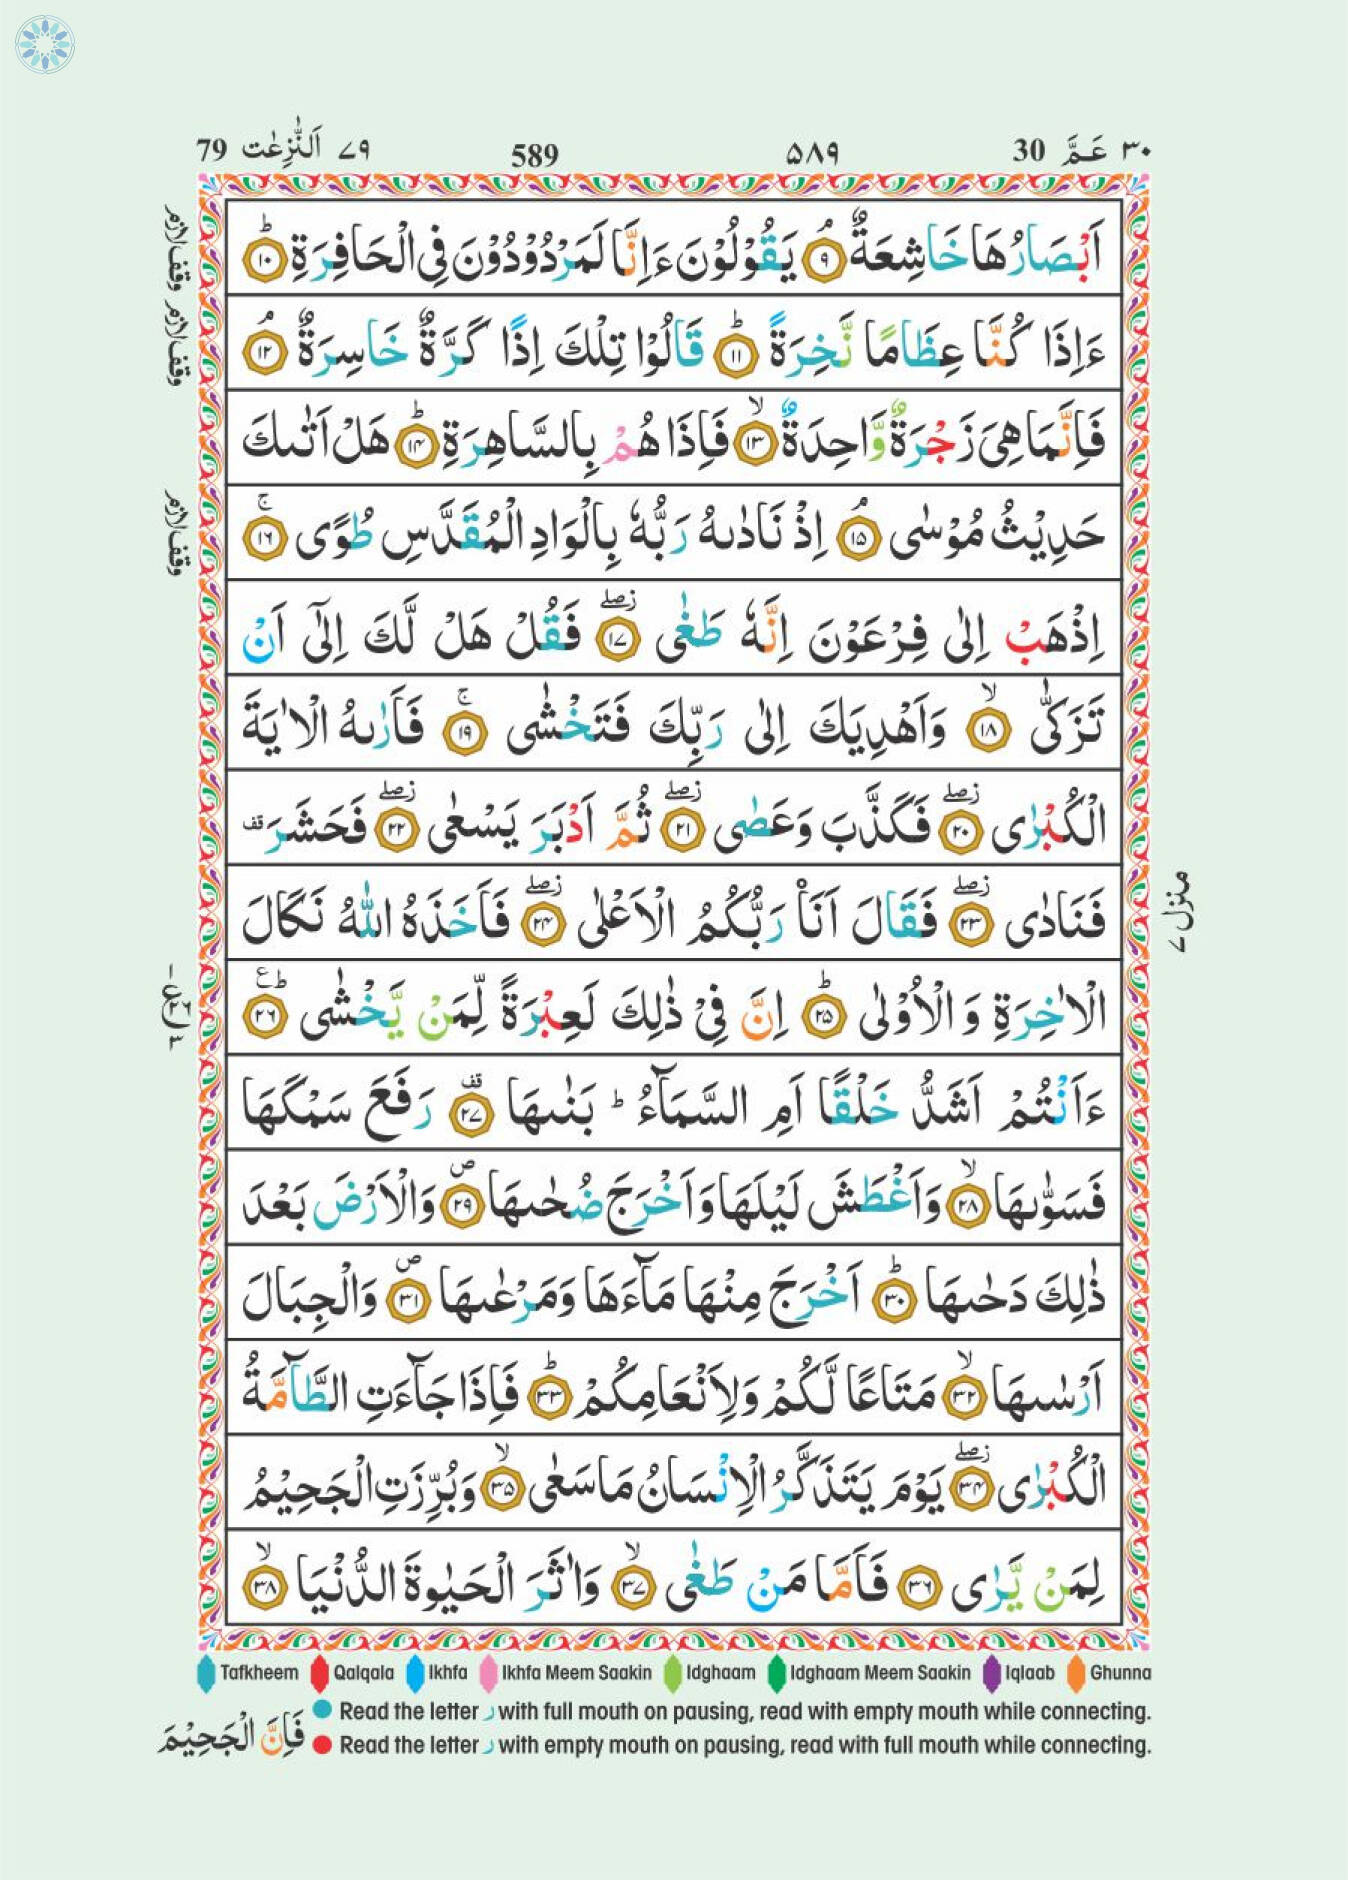 79 اَلنّٰزِعٰت ۷۹ 589 ۵۸۹ 30 عَمَّ ۳۰
اَبْصَارُهَا خَاشِعَةٌ ۘ ۹ يَقُوْلُوْنَ ءَاِنَّا لَمَرْدُوْدُوْنَ فِى الْحَافِرَةِ ؕ ۱۰
ءَاِذَا كُنَّا عِظَامًا نَّخِرَةً ؕ ۱۱ قَالُوْا تِلْكَ اِذًا كَرَّةٌ خَاسِرَةٌ ۘ ۱۲
فَاِنَّمَا هِىَ زَجْرَةٌ وَّاحِدَةٌ ۙ ۱۳ فَاِذَا هُمْ بِالسَّاهِرَةِ ؕ ۱۴ هَلْ اَتٰٮكَ
حَدِيْثُ مُوْسٰى ۘ ۱۵ اِذْ نَادٰٮهُ رَبُّهٗ بِالْوَادِ الْمُقَدَّسِ طُوًى ۚ ۱۶
اِذْهَبْ اِلٰى فِرْعَوْنَ اِنَّهٗ طَغٰى ۖ ۱۷ فَقُلْ هَلْ لَّكَ اِلٰٓى اَنْ
تَزَكّٰى ۙ ۱۸ وَاَهْدِيَكَ اِلٰى رَبِّكَ فَتَخْشٰى ۚ ۱۹ فَاَرٰٮهُ الْاٰيَةَ
الْكُبْرٰى ۖ ۲۰ فَكَذَّبَ وَعَصٰى ۖ ۲۱ ثُمَّ اَدْبَرَ يَسْعٰى ۖ ۲۲ فَحَشَرَ قف
فَنَادٰى ۖ ۲۳ فَقَالَ اَنَا۟ رَبُّكُمُ الْاَعْلٰى ۖ ۲۴ فَاَخَذَهُ اللّٰهُ نَكَالَ
الْاٰخِرَةِ وَالْاُوْلٰى ؕ ۲۵ اِنَّ فِىْ ذٰلِكَ لَعِبْرَةً لِّمَنْ يَّخْشٰى ؕ ع ۲۶
ءَاَنْتُمْ اَشَدُّ خَلْقًا اَمِ السَّمَآءُ ؕ بَنٰٮهَا قف ۲۷ رَفَعَ سَمْكَهَا
فَسَوّٰٮهَا ۙ ۲۸ وَاَغْطَشَ لَيْلَهَا وَاَخْرَجَ ضُحٰٮهَا ص ۲۹ وَالْاَرْضَ بَعْدَ
ذٰلِكَ دَحٰٮهَا ؕ ۳۰ اَخْرَجَ مِنْهَا مَآءَهَا وَمَرْعٰٮهَا ص ۳۱ وَالْجِبَالَ
اَرْسٰٮهَا ۙ ۳۲ مَتَاعًا لَّكُمْ وَلِاَنْعَامِكُمْ ؕ ۳۳ فَاِذَا جَآءَتِ الطَّآمَّةُ
الْكُبْرٰى ۖ ۳۴ يَوْمَ يَتَذَكَّرُ الْاِنْسَانُ مَا سَعٰى ۙ ۳۵ وَبُرِّزَتِ الْجَحِيْمُ
لِمَنْ يَّرٰى ۳۶ فَاَمَّا مَنْ طَغٰى ۙ ۳۷ وَاٰثَرَ الْحَيٰوةَ الدُّنْيَا ۙ ۳۸
وقف لازم
وقف لازم
وقف لازم
منزل ۷
Tafkheem Qalqala Ikhfa Ikhfa Meem Saakin Idghaam Idghaam Meem Saakin Iqlaab Ghunna
Read the letter ر with full mouth on pausing, read with empty mouth while connecting.
Read the letter ر with empty mouth on pausing, read with full mouth while connecting.
فَاِنَّ الْجَحِيْمَ